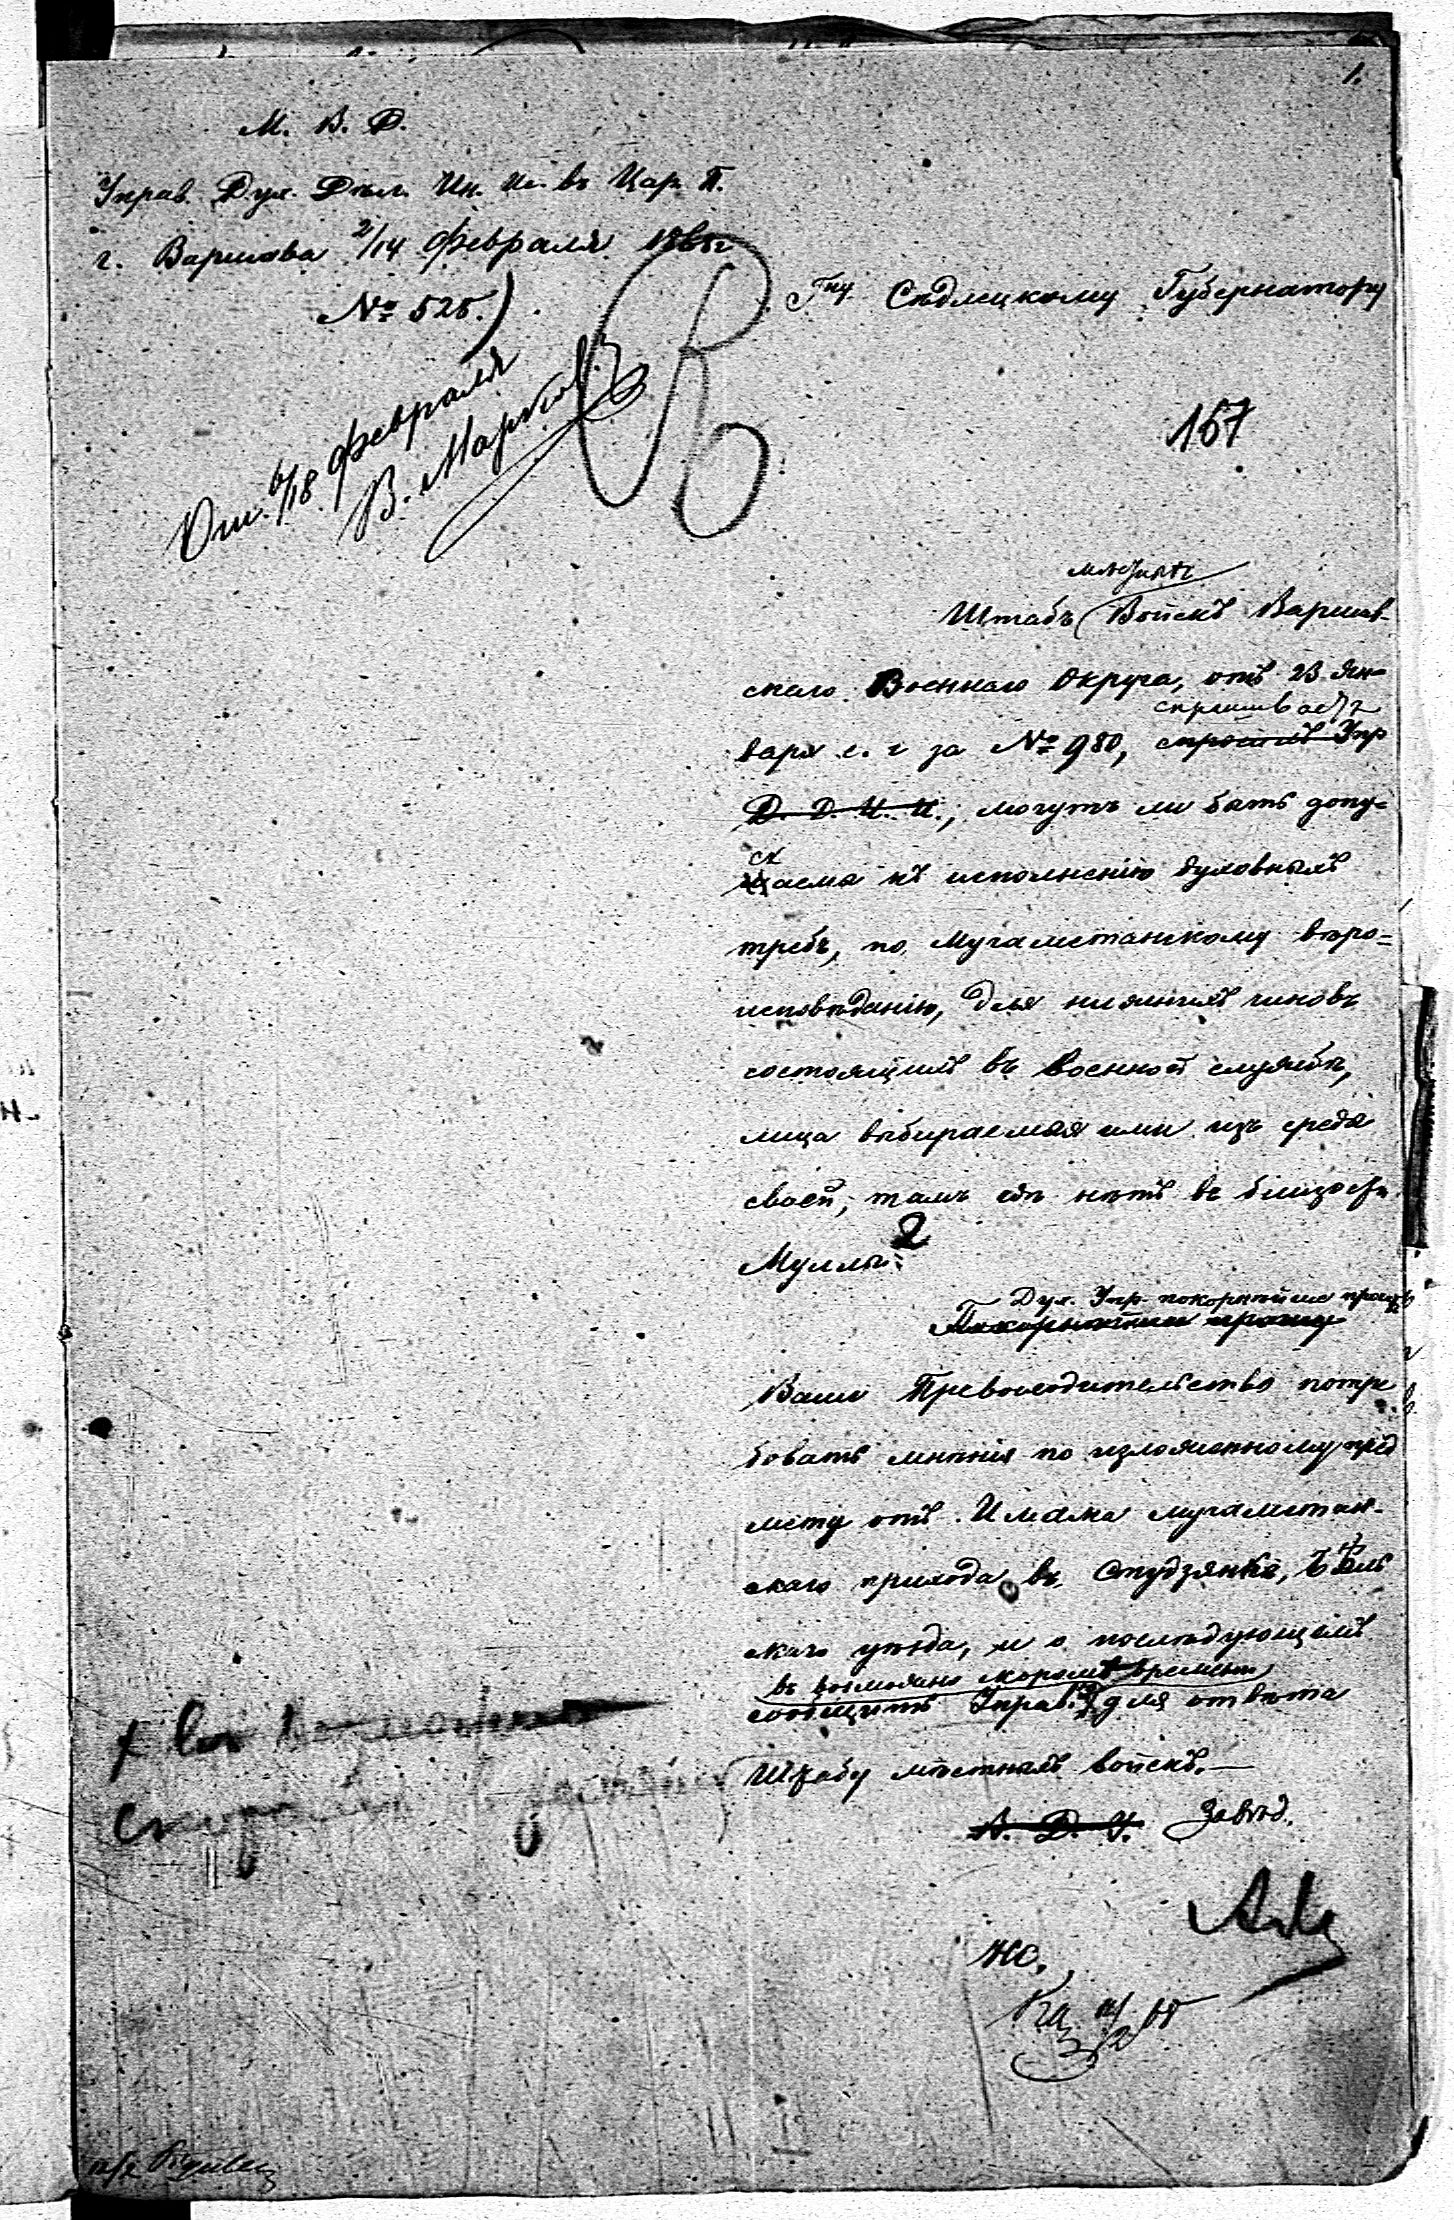 1.
М. В. Д.
Управ. Дух. Дѣл. Ин. Ис. въ Цар. П.
г. Варшава 2/14 Февраля 1868 г
№ 525.
Гну Сѣдлецкому Губернатору
От. 6/18 Февраля
В. Марков
157
мѣстн
Штабъ Войскъ Варшав-
скаго Военнаго Округа, отъ 23 Ян-
спрашиваетъ
варя с. г за № 980, спросилъ Упр
Д. Д. И. И., могутъ ли быть допу-
ск
щаемы къ исполненію духовныхъ
требъ, по Мугаметанскому вѣро-
исповѣданію, для нижнихъ чиновъ
состоящихъ въ военной службѣ,
лица выбираемыя ими изъ среды
своей, тамъ гдѣ нѣтъ въ близости
Муллы?
Дух. Упр покорнѣйше проситъ
Покорнѣйше прошу
Ваше Превосходительство потре
бовать мнѣнія по изложенному пред
мету отъ Имама мугаметан-
скаго прихода въ Студзянкѣ, Бѣль
скаго уѣзда, и о послѣдующемъ
въ возможно скоромъ времени
сообщить Управ. для отвѣта
Штабу мѣстныхъ войскъ.—
х въ возможно
скоро
А. Д. У. Завѣд.
НС.